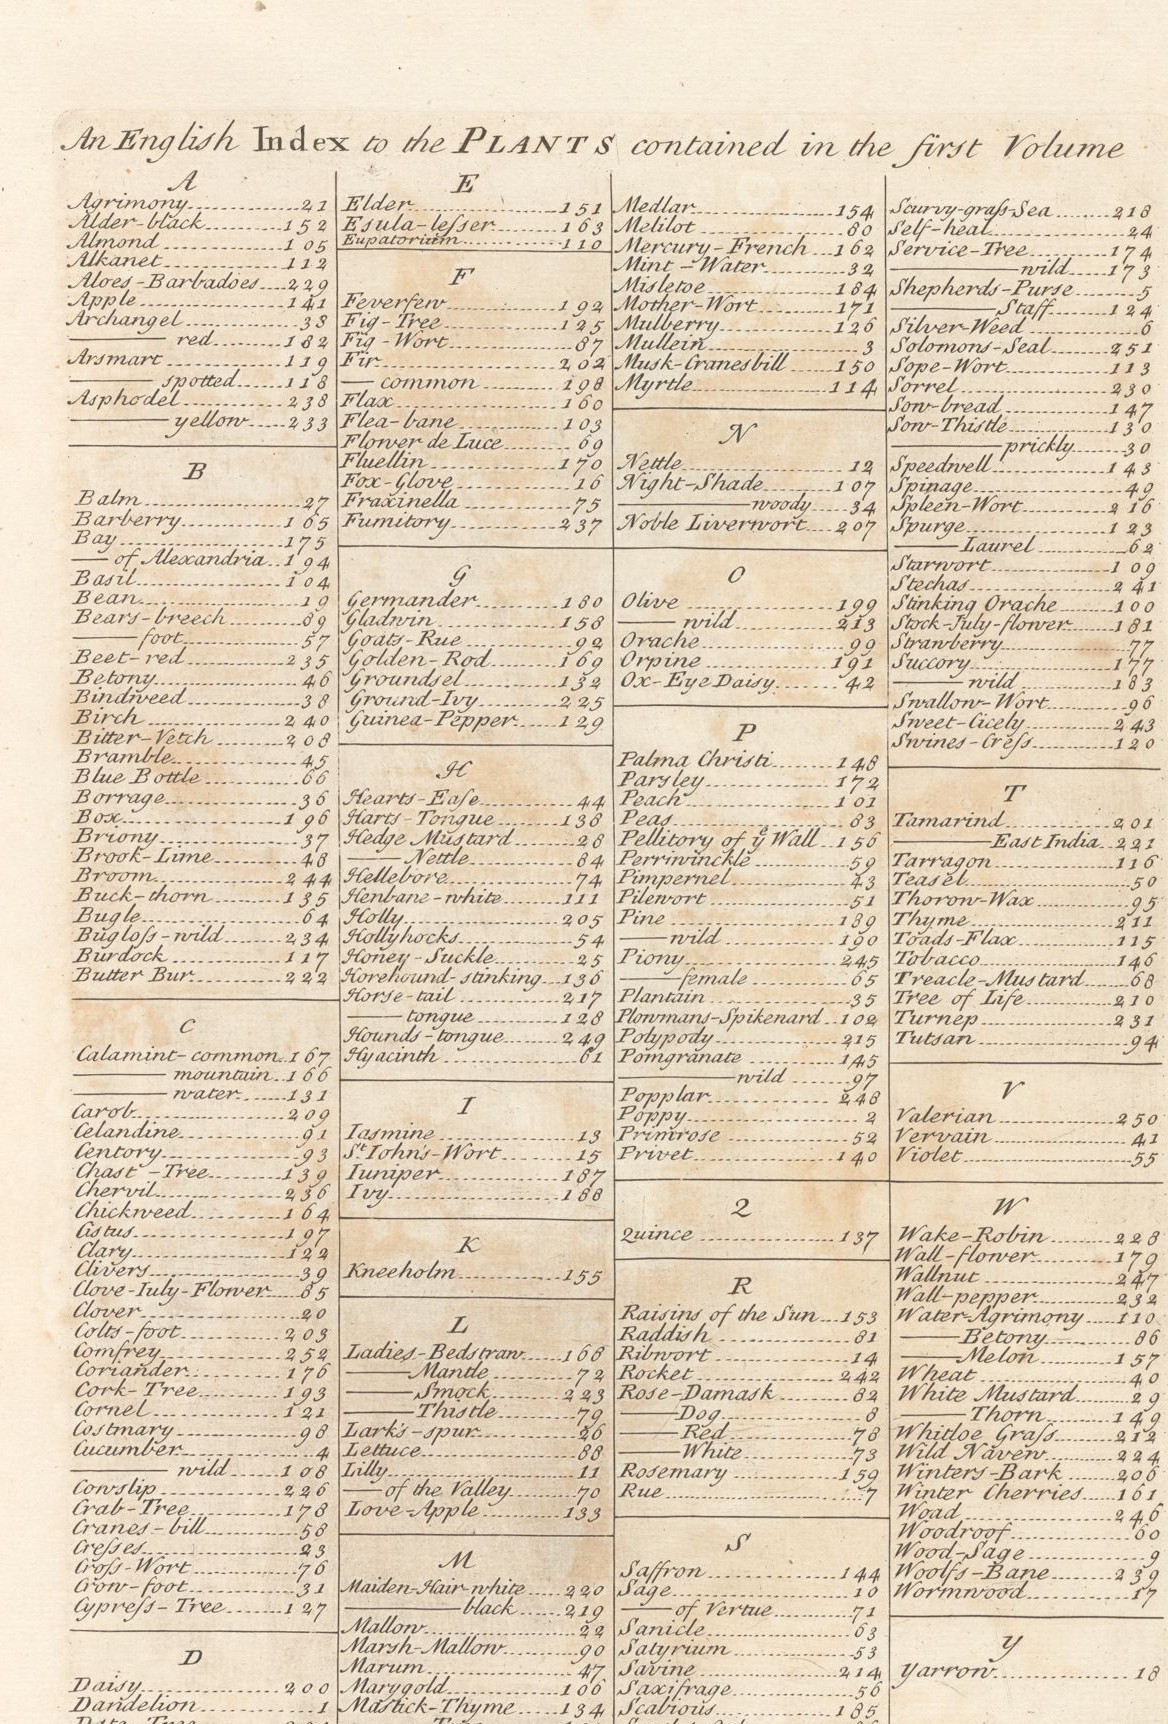 An English Index to the PLANTS contained in the first Volume
A
Agrimony 21
Alder-black 152
Almond 105
Alkanet 112
Aloes-Barbadoes 229
Apple 141
Archangel 38
—— red 182
Arsmart 119
—— spotted 118
Asphodel 238
—— yellow 233
B
Balm 27
Barberry 165
Bay 175
— of Alexandria 194
Basil 104
Bean 19
Bears-breech 89
—— foot 57
Beet-red 235
Betony 46
Bindweed 38
Birch 240
Bitter-Vetch 208
Bramble 45
Blue Bottle 66
Borrage 36
Box 196
Briony 37
Brook-Lime 48
Broom 244
Buck-thorn 135
Bugle 64
Bugloſs-wild 234
Burdock 117
Butter Bur 222
C
Calamint-common 167
—— mountain 166
—— water 131
Carob 209
Celandine 91
Centory 93
Chast-Tree 139
Chervil 236
Chickweed 164
Cistus 197
Clary 122
Clivers 39
Clove-Iuly-Flower 85
Clover 20
Colts-foot 203
Comfrey 252
Coriander 176
Cork-Tree 193
Cornel 121
Costmary 98
Cucumber 4
—— wild 108
Cowslip 226
Crab-Tree 178
Cranes-bill 58
Creſses 23
Croſs-Wort 76
Crow-foot 31
Cypreſs-Tree 127
D
Daisy 200
Dandelion 1
E
Elder 151
Esula-leſser 163
Eupatorium 110
F
Feverfew 192
Fig-Tree 125
Fig-Wort 87
Fir 202
— common 198
Flax 160
Flea-bane 103
Flower de Luce 69
Fluellin 170
Fox-Glove 16
Fraxinella 75
Fumitory 237
G
Germander 180
Gladwin 158
Goats-Rue 92
Golden-Rod 169
Groundsel 132
Ground-Ivy 225
Guinea-Pepper 129
H
Hearts-Eaſe 44
Harts-Tongue 138
Hedge Mustard 28
—— Nettle 84
Hellebore 74
Henbane-white 111
Holly 205
Hollyhocks 54
Honey-Suckle 25
Horehound-stinking 136
Horse-tail 217
—— tongue 128
Hounds-tongue 249
Hyacinth 61
I
Iasmine 13
St Iohn's-Wort 15
Iuniper 187
Ivy 188
K
Kneeholm 155
L
Ladies-Bedstraw 168
—— Mantle 72
—— Smock 223
—— Thistle 79
Lark's-spur 26
Lettuce 88
Lilly 11
— of the Valley 70
Love-Apple 133
M
Maiden-Hair-white 220
—— black 219
Mallow 22
Marsh-Mallow 90
Marum 47
Marygold 106
Mastick-Thyme 134
Medlar 154
Melilot 80
Mercury-French 162
Mint-Water 32
Misletoe 184
Mother-Wort 171
Mulberry 126
Mullein 3
Musk-Cranesbill 150
Myrtle 114
N
Nettle 12
Night-Shade 107
—— woody 34
Noble Liverwort 207
O
Olive 199
—— wild 213
Orache 99
Orpine 191
Ox-Eye Daisy 42
P
Palma Christi 148
Parsley 172
Peach 101
Peas 83
Pellitory of ye Wall 156
Perriwinckle 59
Pimpernel 43
Pilewort 51
Pine 189
—— wild 190
Piony 245
—— female 65
Plantain 35
Plowmans-Spikenard 102
Polypody 215
Pomgranate 145
—— wild 97
Popplar 248
Poppy 2
Primrose 52
Privet 140
Q
Quince 137
R
Raisins of the Sun 153
Raddish 81
Ribwort 14
Rocket 242
Rose-Damask 82
—— Dog 8
—— Red 78
—— White 73
Rosemary 159
Rue 7
S
Saffron 144
Sage 10
— of Vertue 71
Sanicle 63
Satyrium 53
Savine 214
Saxifrage 56
Scabious 185
Scurvy-graſs-Sea 218
Self-heal 24
Service-Tree 174
—— wild 173
Shepherds-Purse 5
—— Staff 124
Silver-Weed 6
Solomons-Seal 251
Sope-Wort 113
Sorrel 230
Sow-bread 147
Sow-Thistle 130
—— prickly 30
Speedwell 143
Spinage 49
Spleen-Wort 216
Spurge 123
—— Laurel 62
Starwort 109
Stechas 241
Stinking Orache 100
Stock-July-flower 181
Strawberry 77
Succory 177
—— wild 183
Swallow-Wort 96
Sweet-Cicely 243
Swines-Creſs 120
T
Tamarind 201
—— East India 221
Tarragon 116
Teasel 50
Thorow-Wax 95
Thyme 211
Toads-Flax 115
Tobacco 146
Treacle-Mustard 68
Tree of Life 210
Turnep 231
Tutsan 94
V
Valerian 250
Vervain 41
Violet 55
W
Wake-Robin 228
Wall-flower 179
Wallnut 247
Wall-pepper 232
Water-Agrimony 110
—— Betony 86
—— Melon 157
Wheat 40
White Mustard 29
—— Thorn 149
Whitloe Graſs 212
Wild Navew 224
Winters-Bark 206
Winter Cherries 161
Woad 246
Woodroof 60
Wood-Sage 9
Woolfs-Bane 239
Wormwood 17
Y
Yarrow 18